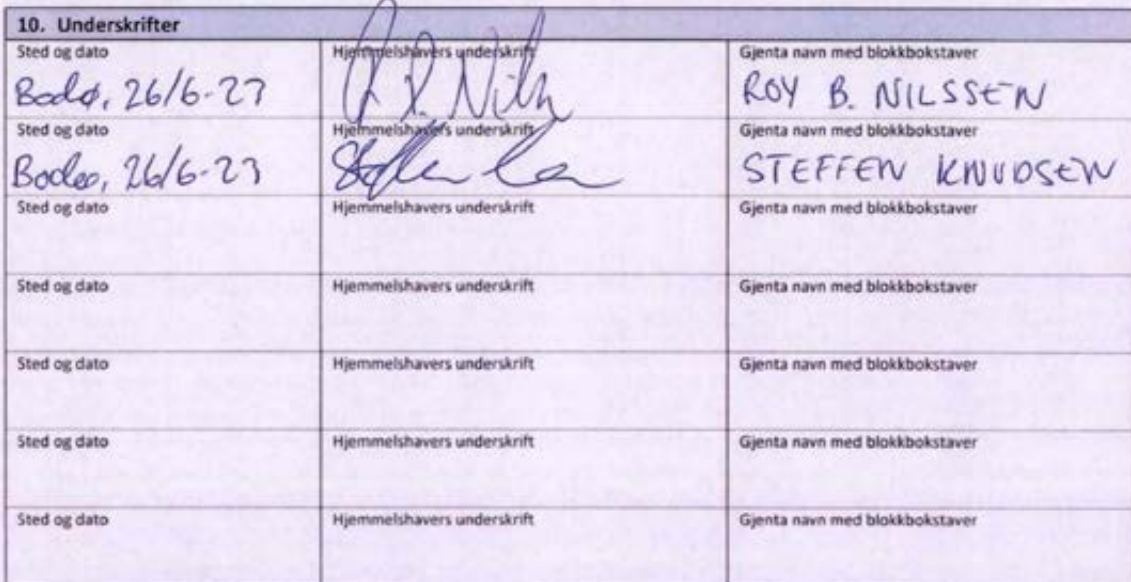 10. Underskrifter
Sted og dato Hjemmelshavers underskrift Gjenta navn med blokkbokstaver
Bodø, 26/6-23 ROY B. NILSSEN
Sted og dato Hjemmelshavers underskrift Gjenta navn med blokkbokstaver
Bodø, 26/6-23 STEFFEN KNUDSEN
Sted og dato Hjemmelshavers underskrift Gjenta navn med blokkbokstaver
Sted og dato Hjemmelshavers underskrift Gjenta navn med blokkbokstaver
Sted og dato Hjemmelshavers underskrift Gjenta navn med blokkbokstaver
Sted og dato Hjemmelshavers underskrift Gjenta navn med blokkbokstaver
Sted og dato Hjemmelshavers underskrift Gjenta navn med blokkbokstaver